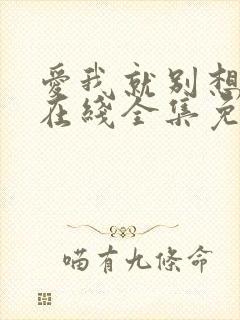 愛我就別想
在綫全集免
喵有九條命